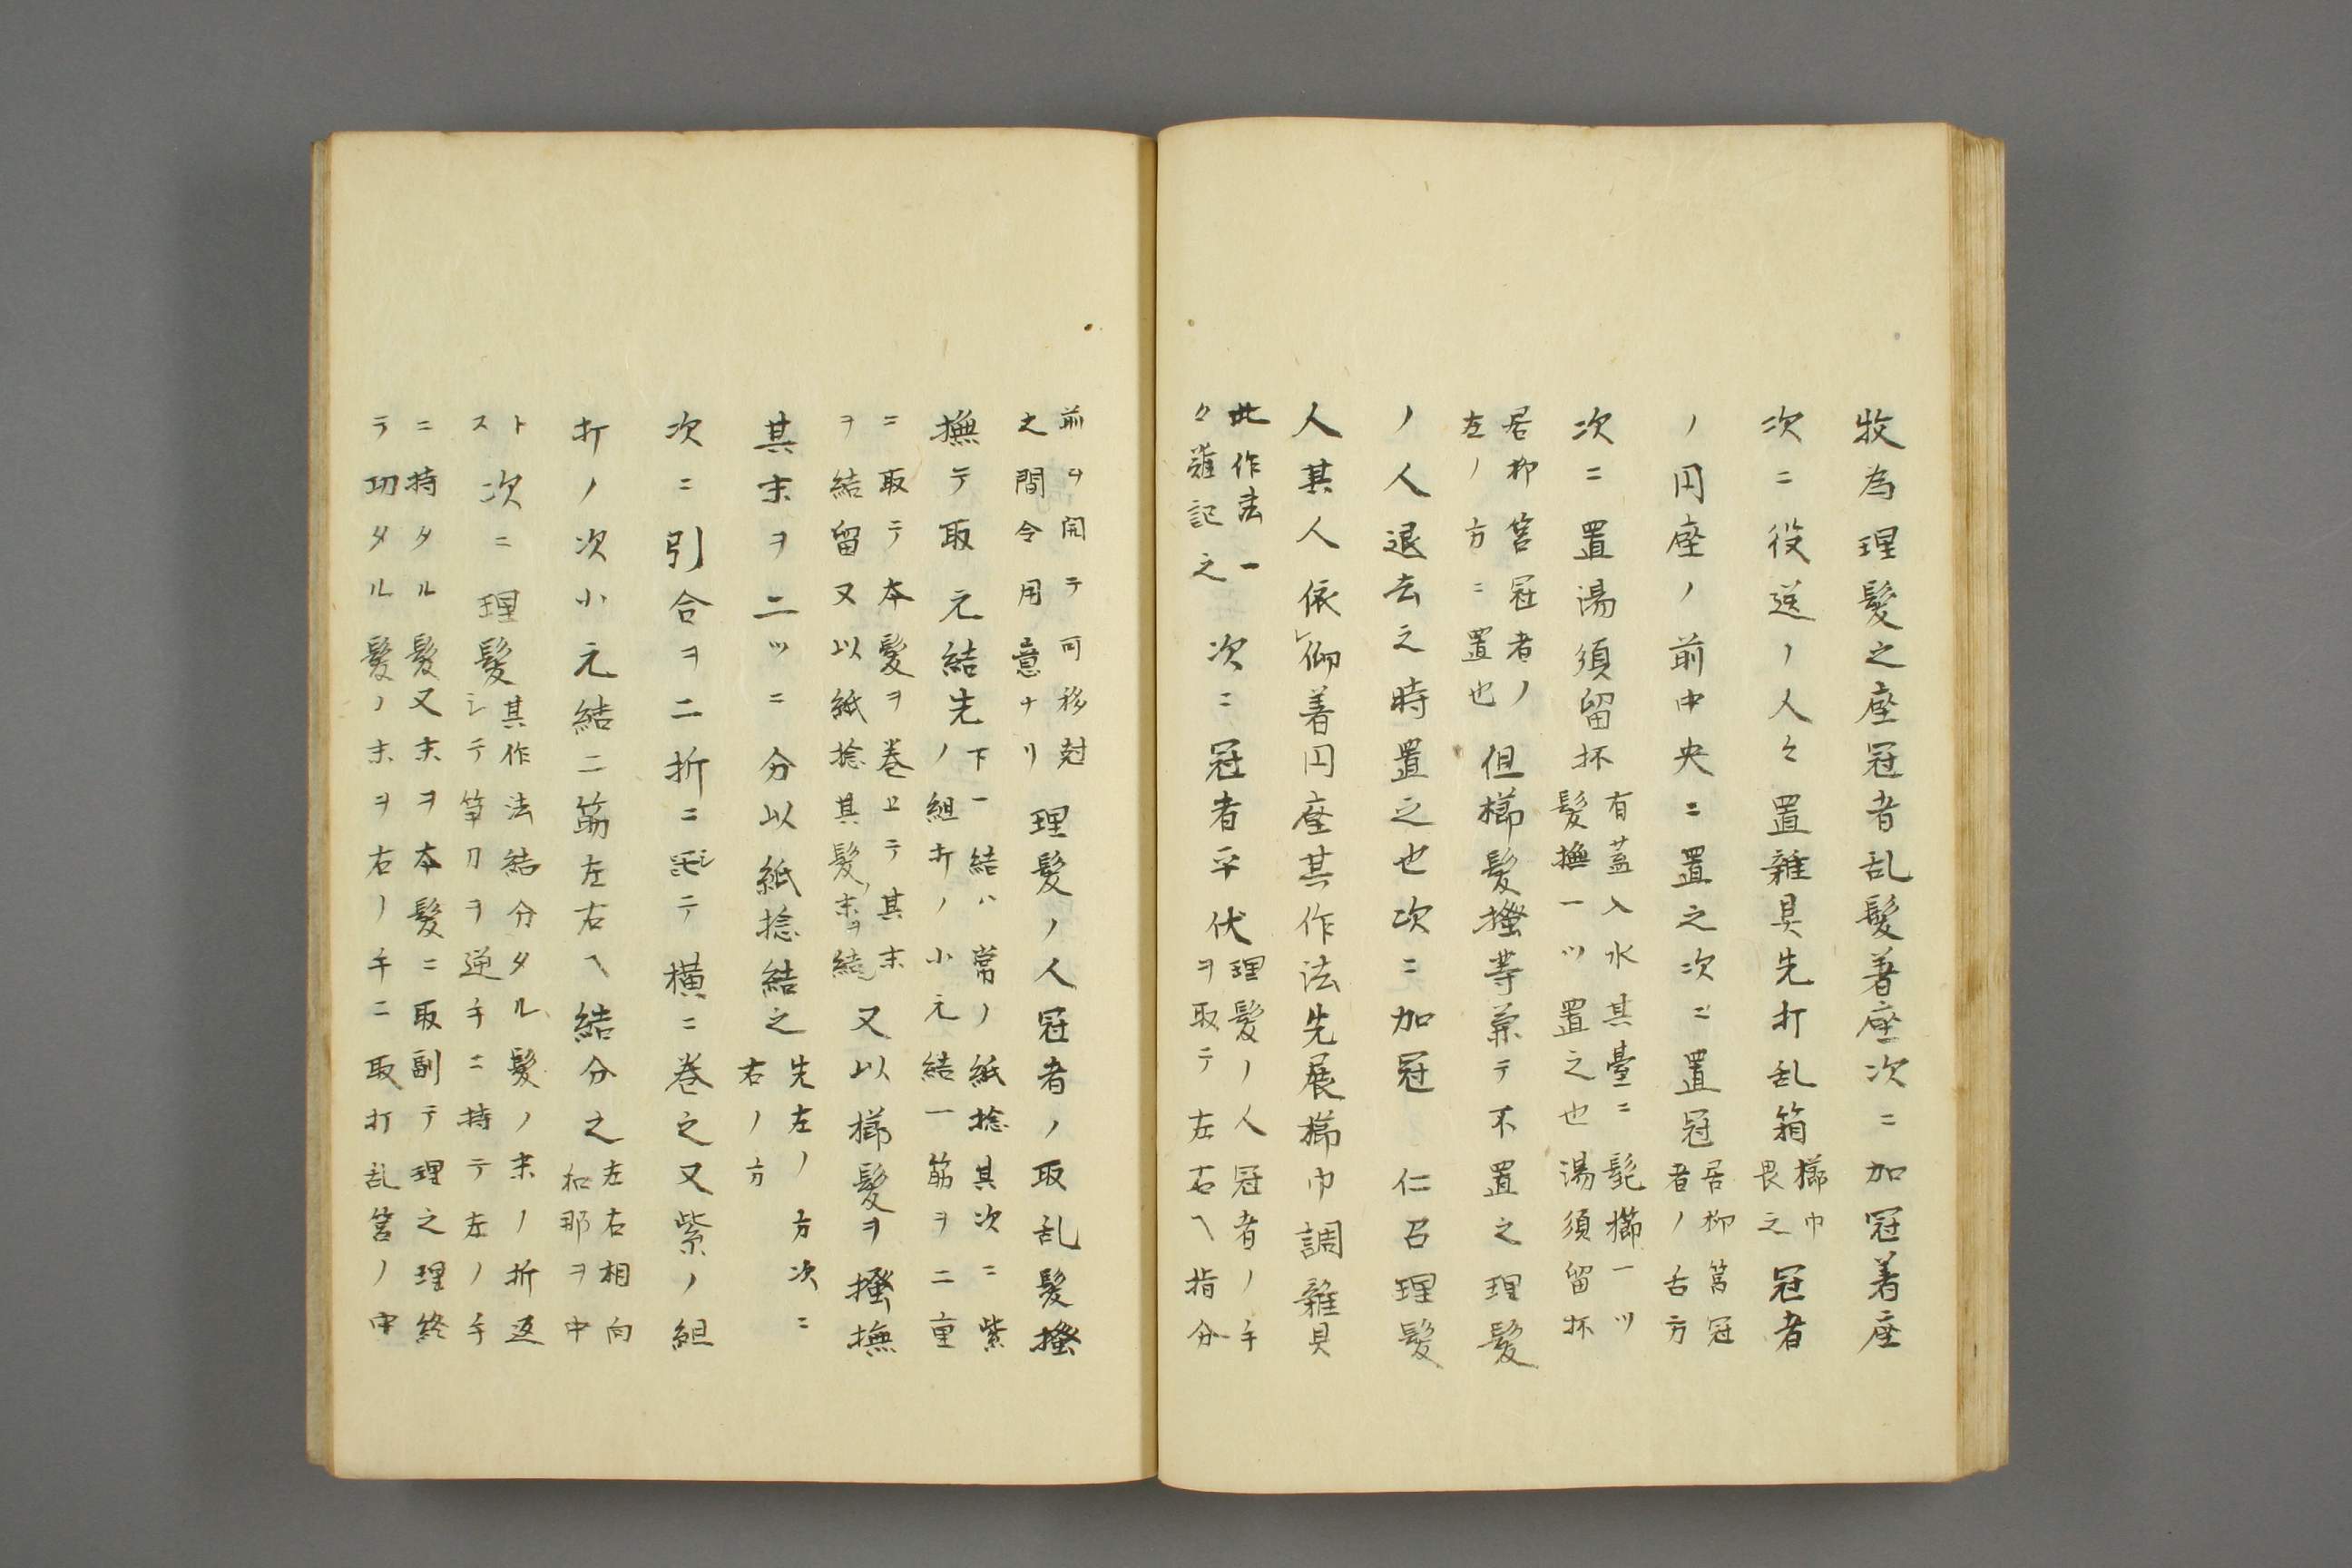 牧為理髪之座冠者乱髪著座次ニ加冠着座
次ニ役送ノ人々置雑具先打乱箱
櫛巾
畏之
冠者
ノ円座ノ前中央ニ置之次ニ置冠
居柳筥冠
者ノ右方
次ニ置湯須留抔
有蓋入水其臺ニ髢櫛一ツ
髪撫一ツ置之也湯須留抔
居柳筥冠者ノ
左ノ方ニ置也
但櫛髪掻等兼テ不置之理髪
ノ人退去之時置之也次ニ加冠 仁召理髪
人其人依仰着円座其作法先展櫛巾調雑具
此作法一
々難記之
次ニ冠者平伏
理髪ノ人冠者ノ手
ヲ取テ左右ヘ指分
前ヲ開テ可移尅
之間令用意ナリ
理髪ノ人冠者ノ取乱髪掻
撫テ取元結先
下一結ハ常ノ紙捻其次ニ紫
ノ組打ノ小元結一筋ヲ二重
ニ取テ本髪ヲ巻上テ其末
ヲ結留又以紙捻其髪ノ末ヲ結
又以櫛髪ヲ掻撫
其末ヲ二ツニ分以紙捻結之
先左ノ方次ニ
右ノ方
次ニ引合ヲ二折ニシテ横ニ巻之又紫ノ組
打ノ次小元結二筋左右ヘ結分之
左右相向
和那ヲ中
ト
ス
次ニ理髪
其作法結分タル髪ノ末ノ折返
シテ笄刀ヲ逆手ニ持テ左ノ手
ニ持タル髪又末ヲ本髪ニ取副テ理之理終
テ切タル髪ノ末ヲ右ノ手ニ取打乱筥ノ中